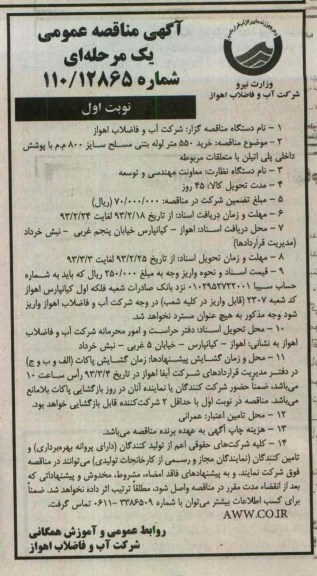 آگهی مناقصه عمومی
یک مرحله‌ای
شماره ۱۱۰/۱۲۸۶۵
وزارت نیرو
شرکت آب و فاضلاب اهواز
نوبت اول
۱ - نام دستگاه مناقصه گزار: شرکت آب و فاضلاب اهواز
۲ - موضوع مناقصه: خرید ۵۵۰ متر لوله بتنی مسلح سایز ۸۰۰ م.م با پوشش
داخلی پلی اتیلن با متعلقات مربوطه
۳ - نام دستگاه نظارت: معاونت مهندسی و توسعه
۴ - مدت تحویل کالا: ۴۵ روز
۵ - مبلغ تضمین شرکت در مناقصه: ۷۰/۰۰۰/۰۰۰ (ریال)
۶ - مهلت و زمان دریافت اسناد: از تاریخ ۹۳/۲/۱۸ لغایت ۹۳/۲/۲۴
۷ - محل دریافت اسناد: اهواز - کیانپارس خیابان پنجم غربی - نبش خرداد
(مدیریت قراردادها)
۸ - مهلت و زمان تحویل اسناد: از تاریخ ۹۳/۲/۲۵ لغایت ۹۳/۳/۳
۹ - قیمت اسناد و نحوه واریز وجه به مبلغ ۲۵۰/۰۰۰ ریال که باید به شماره
حساب سیبا ۰۱۰۲۹۵۲۷۲۲۰۰۱ نزد بانک صادرات شعبه فلکه اول کیانپارس اهواز
کد شعبه ۲۳۰۷ (قابل واریز در کلیه شعب) در وجه شرکت آب و فاضلاب اهواز واریز
شود وجه مذکور به هیچ عنوان مسترد نخواهد شد.
۱۰ - محل تحویل اسناد: دفتر حراست و امور محرمانه شرکت آب و فاضلاب
اهواز به نشانی: اهواز - کیانپارس - خیابان ۵ غربی - نبش خرداد
۱۱ - محل و زمان گشایش پیشنهادها: زمان گشایش پاکات (الف و ب و ج)
در دفتر مدیریت قراردادهای شرکت آبفا اهواز در تاریخ ۹۳/۳/۴ رأس ساعت ۱۰
می‌باشد، ضمناً حضور شرکت کنندگان یا نماینده آنان در روز بازگشایی پاکات بلامانع
می‌باشد. مناقصه در نوبت اول با حداقل ۲ شرکت‌کننده قابل بازگشایی خواهد بود.
۱۲ - محل تامین اعتبار: عمرانی
۱۳ - هزینه چاپ آگهی به عهده برنده مناقصه می‌باشد.
۱۴ - کلیه شرکت‌های حقوقی اعم از تولید کنندگان (دارای پروانه بهره‌برداری) و
تامین کنندگان (نمایندگان مجاز و رسمی از کارخانجات تولیدی) می‌توانند در مناقصه
فوق شرکت نمایند. و به پیشنهادهای فاقد امضاء، مشروط، مخدوش و پیشنهاداتی که
بعد از انقضاء مدت مقرر در مناقصه واصل شود، مطلقاً ترتیب اثر داده نخواهد شد. ضمناً
برای کسب اطلاعات بیشتر می‌توان با شماره ۳۳۸۶۵۰۹-۰۶۱۱ تماس گرفت.
AWW.CO.IR
روابط عمومی و آموزش همگانی
شرکت آب و فاضلاب اهواز